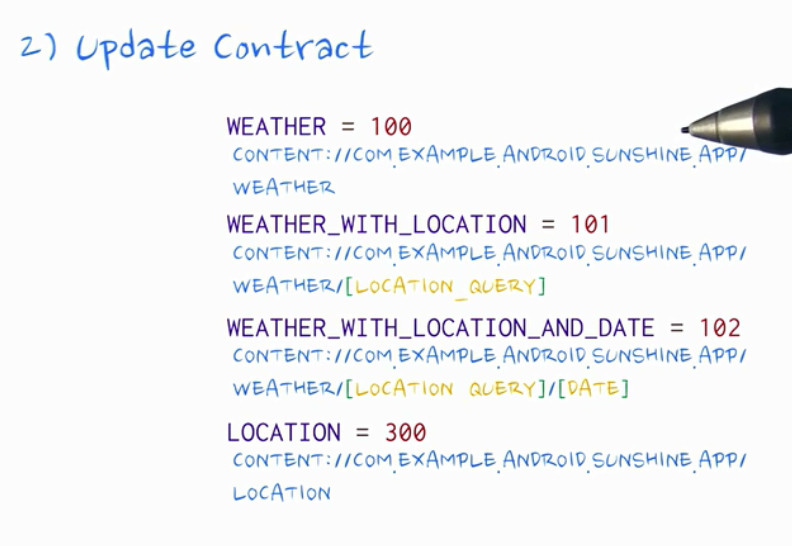 2) Update Contract
WEATHER = 100
CONTENT://COM.EXAMPLE.ANDROID.SUNSHINE.APP/
WEATHER
WEATHER_WITH_LOCATION = 101
CONTENT://COM.EXAMPLE.ANDROID.SUNSHINE.APP/
WEATHER/[LOCATION_QUERY]
WEATHER_WITH_LOCATION_AND_DATE = 102
CONTENT://COM.EXAMPLE.ANDROID.SUNSHINE.APP/
WEATHER/[LOCATION QUERY]/[DATE]
LOCATION = 300
CONTENT://COM.EXAMPLE.ANDROID.SUNSHINE.APP/
LOCATION